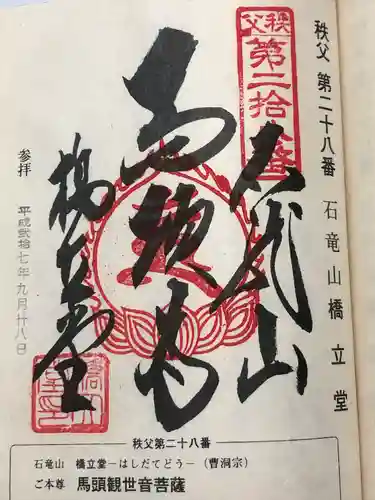 秩父 第二十八番 石竜山橋立堂
秩父
第二拾八番
石龍山
馬頭尊
橋立堂
参拝
平成弐拾七年九月廿八日
秩父第二十八番
石竜山 橋立堂―はしだてどう―(曹洞宗)
ご本尊 馬頭観世音菩薩